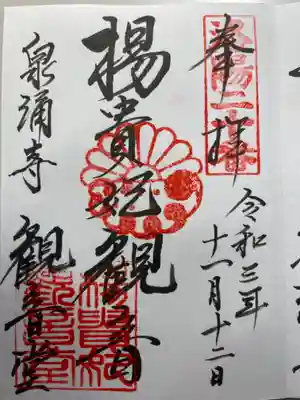 奉拝
令和三年
十一月十二日
楊貴妃観音
泉涌寺
観音堂